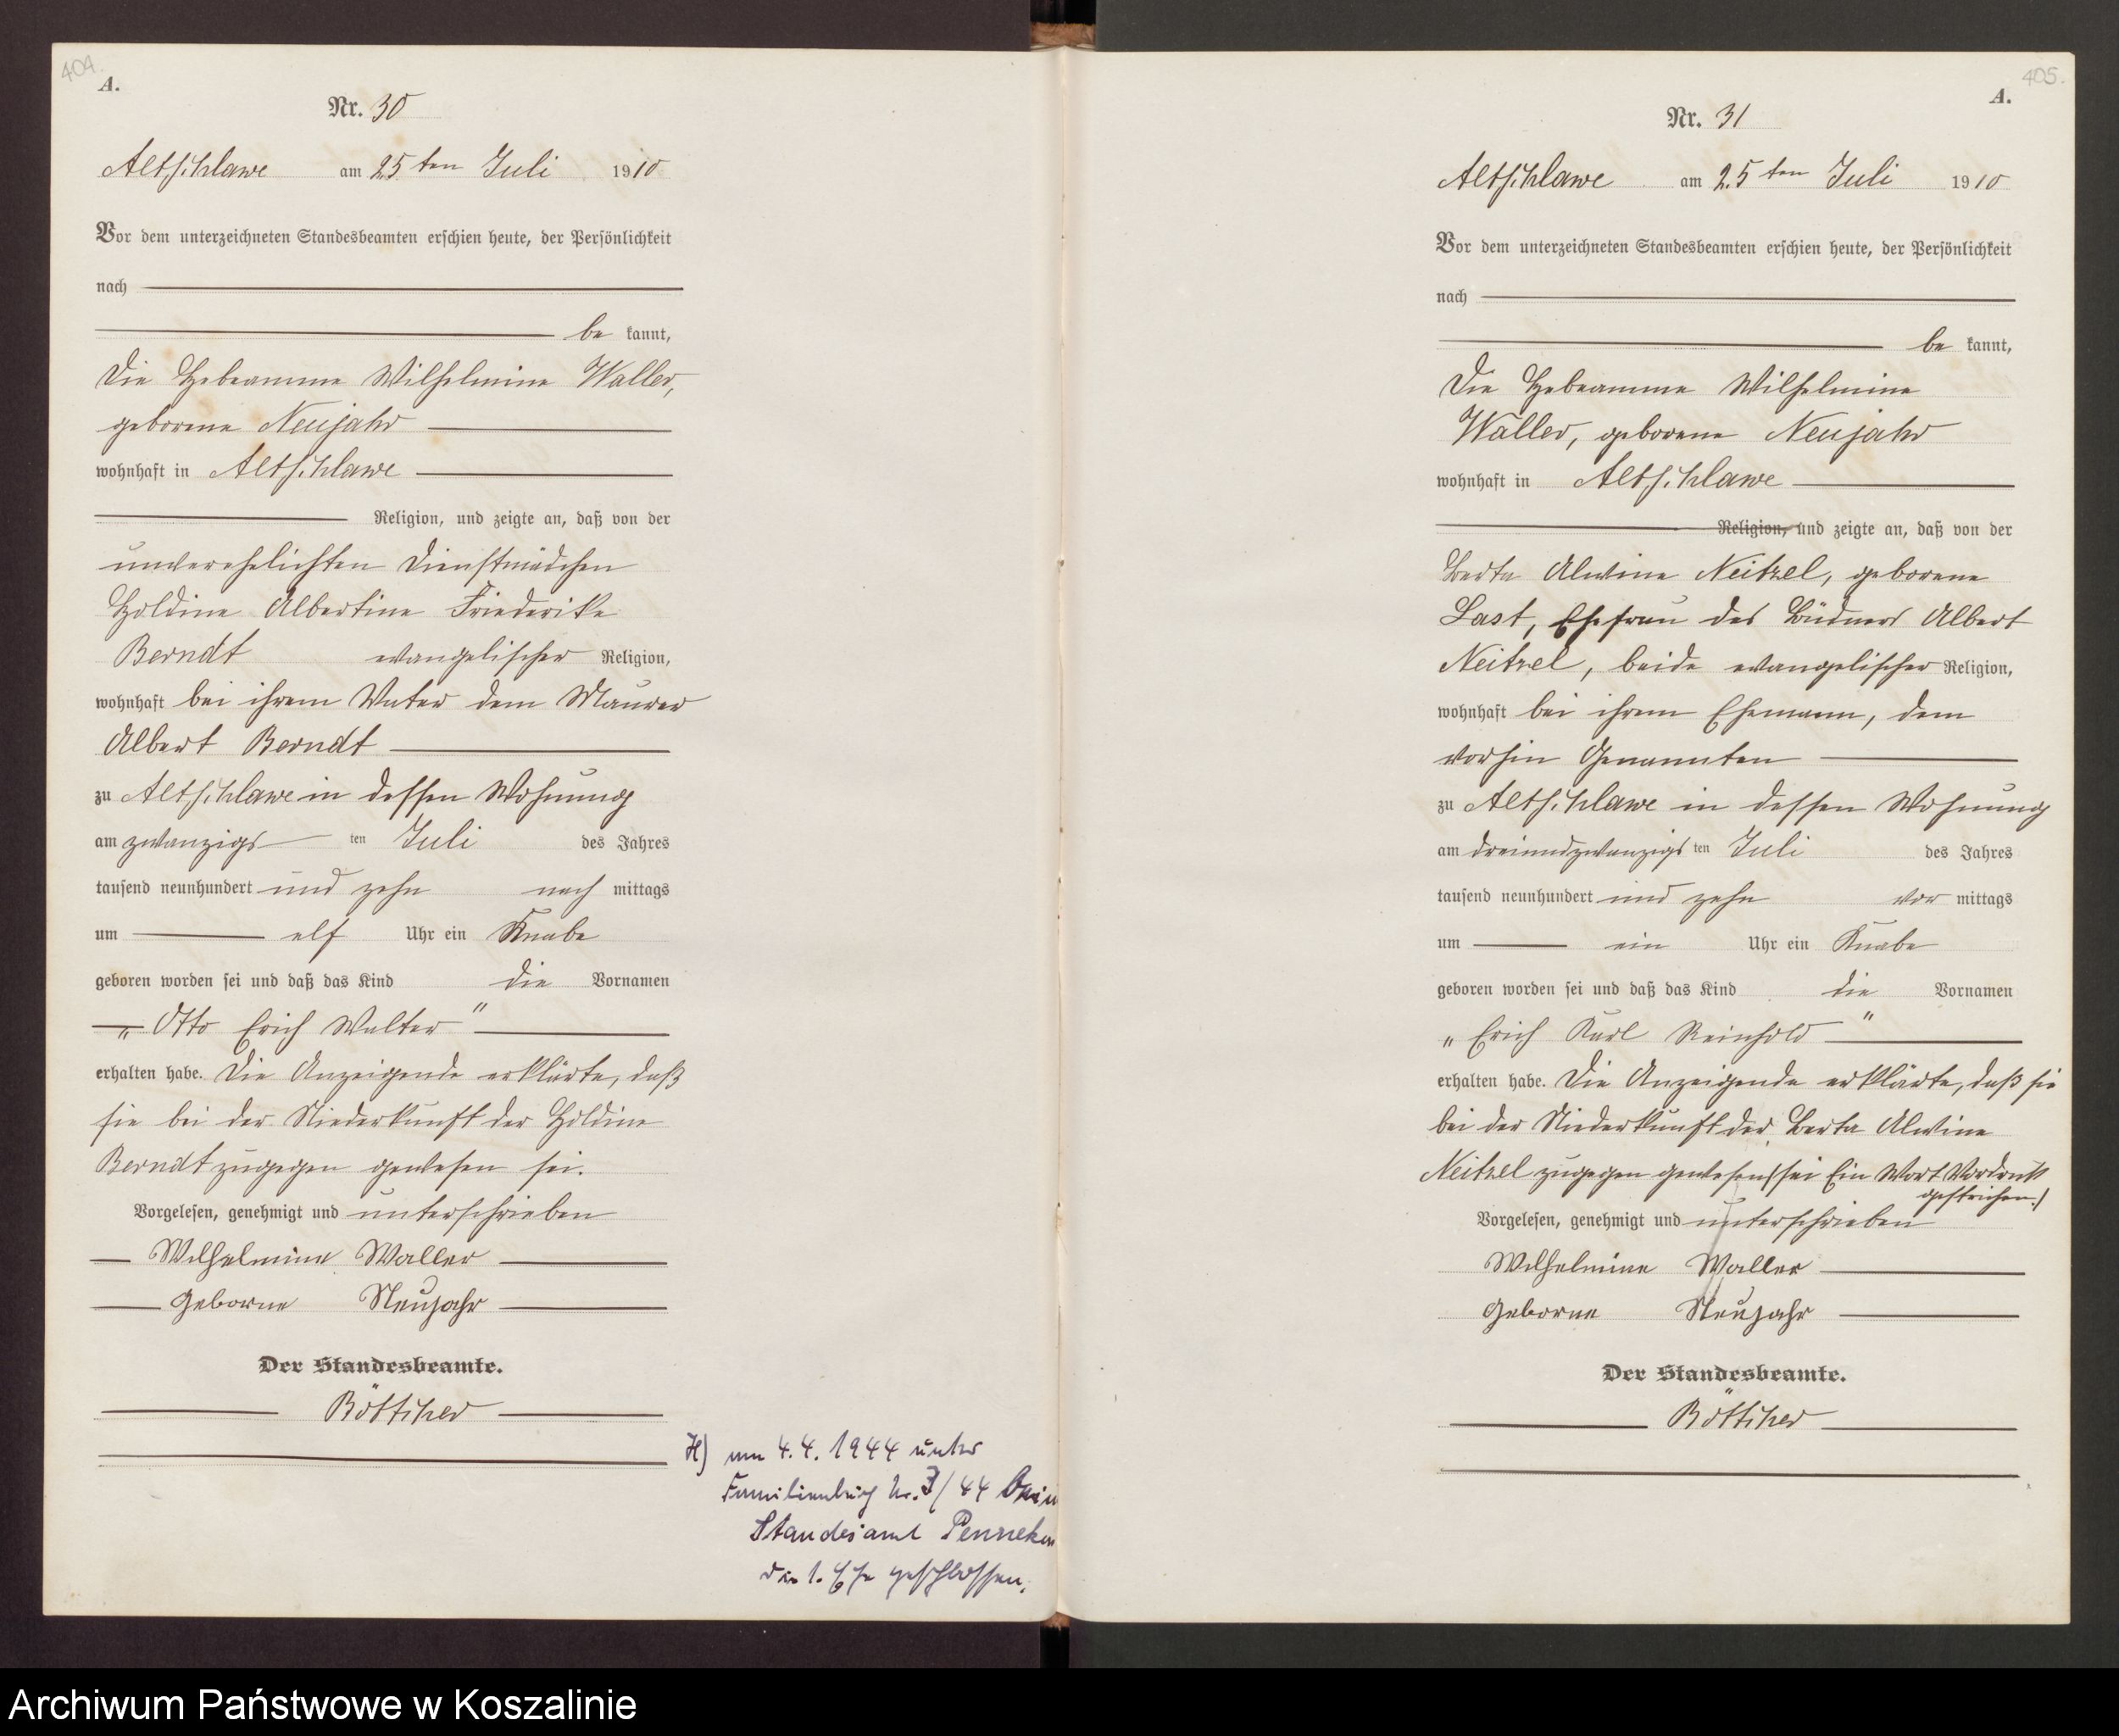 404.
A.
Nr. 30
Altschlawe am 25 ten Juli 1910
Vor dem unterzeichneten Standesbeamten erschien heute, der Persönlichkeit
nach
be kannt,
die Hebeamme Wilhelmine Waller,
geborene Neujahr
wohnhaft in Altschlawe
Religion, und zeigte an, daß von der
unverehelichten Dienstmädchen
Holdine Albertine Friederike
Berndt evangelischer Religion,
wohnhaft bei ihrem Vater dem Maurer
Albert Berndt
zu Altschlawe in dessen Wohnung
am zwanzigs ten Juli des Jahres
tausend neunhundert und zehn nach mittags
um elf Uhr ein Knabe
geboren worden sei und daß das Kind die Vornamen
„Otto Erich Walter"
erhalten habe. Die Anzeigende erklärte, daß
sie bei der Niederkunft der Holdine
Berndt zugegen gewesen sei.
Vorgelesen, genehmigt und unterschrieben
Wilhelmine Waller
Geborne Neujahr
Der Standesbeamte.
Böttcher
H) am 4.4.1944 unter
Familienbuch Nr. 7/44 beim
Standesamt
die 1. Ehe geschlossen.
405.
A.
Nr. 31
Altschlawe am 25 ten Juli 1910
Vor dem unterzeichneten Standesbeamten erschien heute, der Persönlichkeit
nach
be kannt,
die Hebeamme Wilhelmine
Waller, geborene Neujahr
wohnhaft in Altschlawe
Religion, und zeigte an, daß von der
Berta Alwine Neitzel, geborene
Last, Ehefrau des Büdners Albert
Neitzel, beide evangelischer Religion,
wohnhaft bei ihrem Ehemann, dem
vorhin Genannten
zu Altschlawe in dessen Wohnung
am dreiundzwanzigs ten Juli des Jahres
tausend neunhundert und zehn vor mittags
um ein Uhr ein Knabe
geboren worden sei und daß das Kind die Vornamen
„Erich Karl Reinhold"
erhalten habe. Die Anzeigende erklärte, daß sie
bei der Niederkunft der Berta Alwine
Neitzel zugegen gewesen sei (Ein Wort Vordruck
gestrichen.)
Vorgelesen, genehmigt und unterschrieben
Wilhelmine Waller
Geborne Neujahr
Der Standesbeamte.
Böttcher
Archiwum Państwowe w Koszalinie